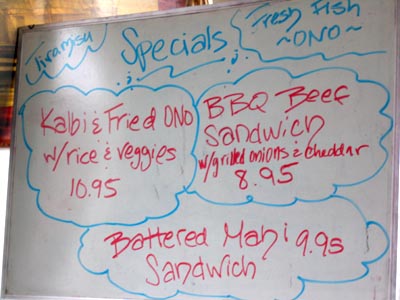 Tiramisu
Specials
Fresh Fish
~ONO~
Kalbi & Fried ONO
w/rice & veggies
10.95
BBQ Beef
Sandwich
w/grilled onions & cheddar
8.95
Battered Mahi 9.95
Sandwich